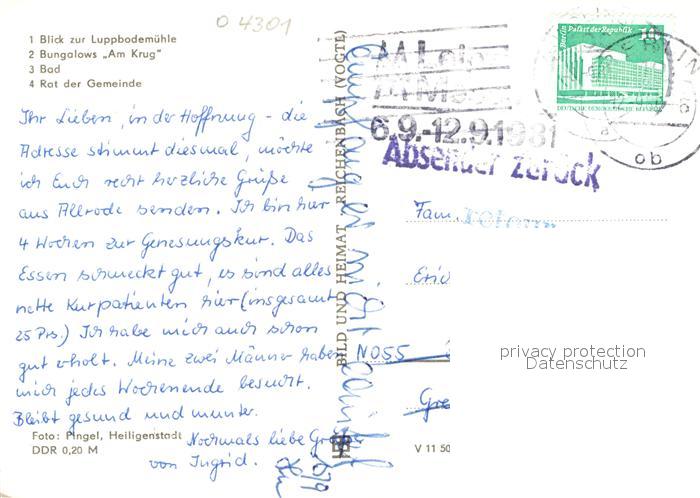 0 4301
1 Blick zur Luppbodemühle
2 Bungalows „Am Krug"
3 Bad
4 Rat der Gemeinde
Ihr Lieben, in der Hoffnung - die
Adresse stimmt diesmal, möchte
ich Euch recht herzliche Grüße
aus Allrode senden. Ich bin hier
4 Wochen zur Genesungskur. Das
Essen schmeckt gut, es sind alles
nette Kurpatienten hier (insgesamt
25 Prs.) Ich habe mich auch schon
gut erholt. Meine zwei Männer haben
mich jedes Wochenende besucht.
Bleibt gesund und munter.
Nochmals liebe Grüße
von Ingrid.
Foto: Pingel, Heiligenstadt
DDR 0,20 M
BILD UND HEIMAT REICHENBACH (VOGTL)
6.9.-12.9.1981
Absender zurück
Berlin Palast der Republik
10
DEUTSCHE DEMOKRATISCHE REPUBLIK
ob
Fam.
Retour
Eric
NO55
Gre
V 11 50
privacy protection
Datenschutz